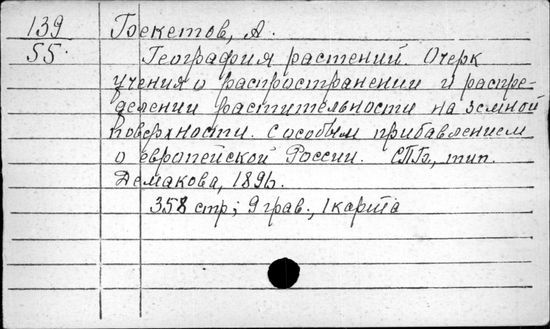 139 Бекетов, А.
55. География растений. Очерк
учения о распространении и распре-
делении растительности на земной
поверхности. С особым прибавлением
о европейской России. СПБ, тип.
Демакова, 1896.
358 стр; 9 грав., 1 карта